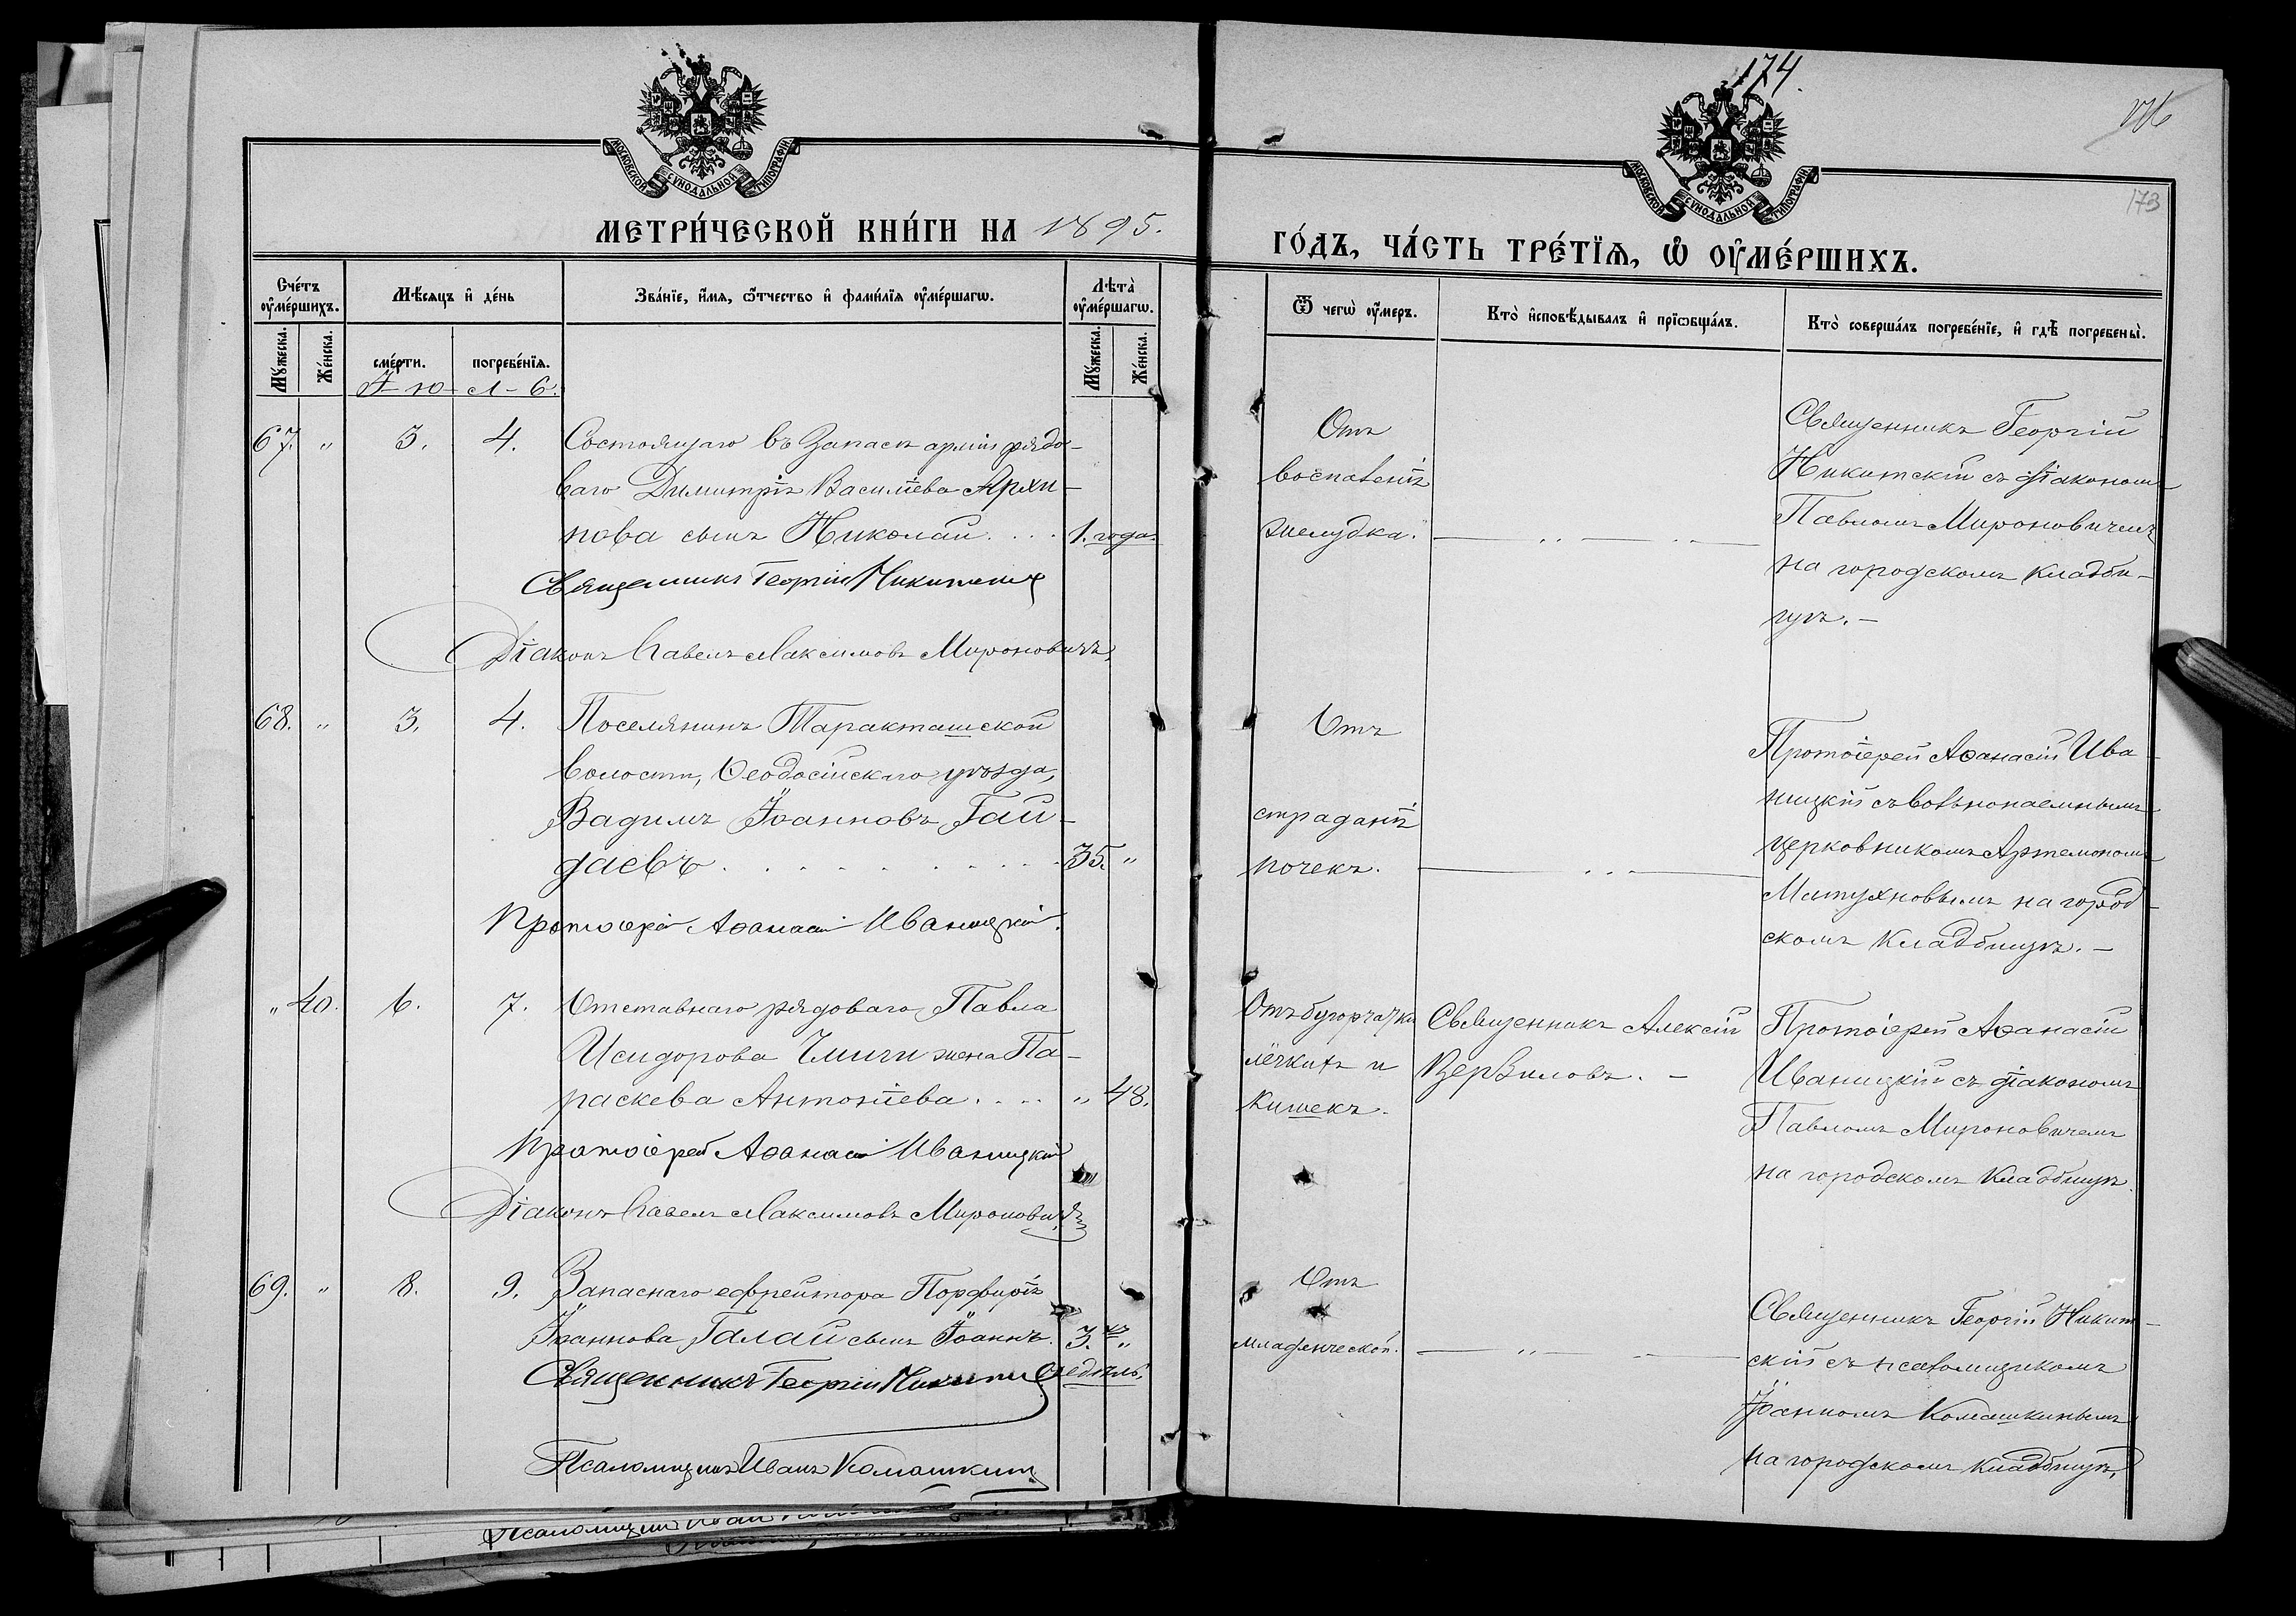 174.
173
МОСКОВСКОЙ СѴНОДАЛЬНОЙ ТИПОГРАФІИ
МОСКОВСКОЙ СѴНОДАЛЬНОЙ ТИПОГРАФІИ
МЕТРИ́ЧЕСКОЙ КНИ́ГИ НА 1895.
ГО́ДЪ, ЧА́СТЬ ТРЕ́ТЇѦ, Ѡ҆ ОУ҆МЕ́РШИХЪ.
Сче́тъ оу҆ме́ршихъ.
Мѣ́сѧцъ и҆ де́нь
Зва́нїе, и҆́мѧ, ѻ҆́тчество и҆ фамі́лїѧ оу҆ме́ршагѡ.
Лѣ̑та оу҆ме́ршагѡ.
Ѿ чегѡ̀ оу҆́меръ.
Кто̀ и҆сповѣ́дывалъ и҆ прїѡбща́лъ.
Кто̀ соверша́лъ погребе́нїе, и҆ гдѣ̀ погребены̀.
Мꙋ́жеска.
Же́нска.
сме́рти.
погребе́нїѧ.
Мꙋ́жеска.
Же́нска.
І - ю - л - ь.
67. " 3. 4. Состоящаго въ Запасѣ арміи рядо-
ваго Димитрія Василіева Архи-
пова сынъ Николай . . . 1. года.
Священникъ Георгій Никитскій
Діаконъ Павелъ Максимовъ Мироновичъ.
Отъ
воспаленія
желудка.
Священникъ Георгій
Никитскій съ діакономъ
Павломъ Мироновичемъ
на городскомъ кладби-
щѣ. -
68. " 3. 4. Поселянинъ Таракташской
волости, Ѳеодосійскаго уѣзда,
Вадимъ Іоанновъ Гай-
даевъ . . . . . . . . . 35. "
Протоіерей Аѳанасій Иваницкій.
Отъ
страданія
почекъ.
Протоіерей Аѳанасій Ива-
ницкій съ вольнонаемнымъ
церковникомъ Артемономъ
Матухновымъ на город-
скомъ кладбищѣ. -
" 40. 6. 7. Отставнаго рядоваго Павла
Исидорова Чмиги жена Па-
раскева Антоніева. . . . " 48.
Протоіерей Аѳанасій Иваницкій
Діаконъ Павелъ Максимовъ Мироновичъ
Отъ бугорчатки
лёгкихъ и
кишекъ.
Священникъ Алексій
Вервиловъ. -
Протоіерей Аѳанасій
Иваницкій съ діакономъ
Павломъ Мироновичемъ
на городскомъ кладбищѣ.
69. " 8. 9. Запаснаго ефрейтора Порфирія
Іоаннова Галай сынъ Іоаннъ. 3. "
недѣль.
Священникъ Георгій Никитскій
Псаломщикъ Иванъ Комашкинъ
Отъ
младенческой.
Священникъ Георгій Никит-
скій съ псаломщикомъ
Іоанномъ Комашкинымъ
на городскомъ кладбищѣ.